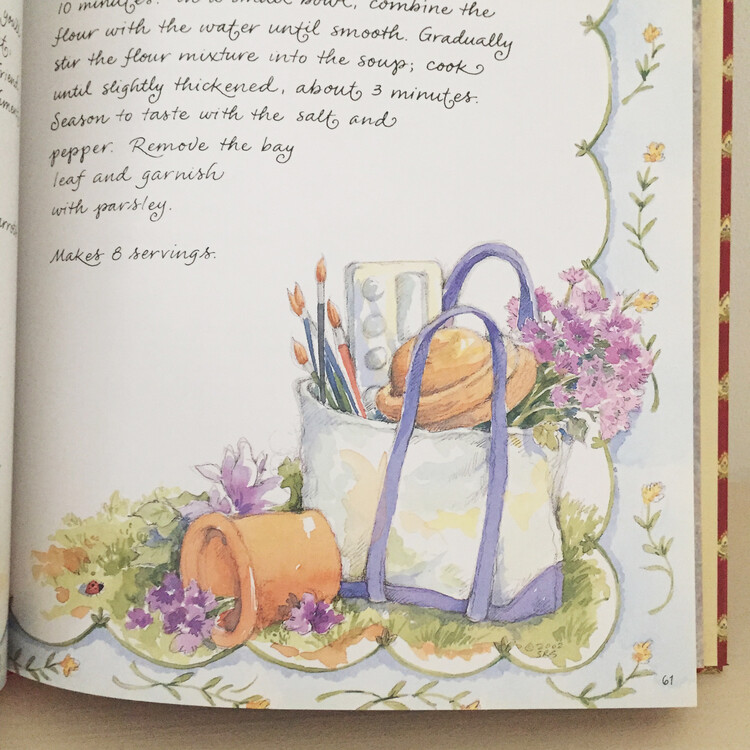 10 minutes. In a small bowl, combine the
flour with the water until smooth. Gradually
stir the flour mixture into the soup; cook
until slightly thickened, about 3 minutes.
Season to taste with the salt and
pepper. Remove the bay
leaf and garnish
with parsley.
Makes 8 servings.
©2002
SKS
61